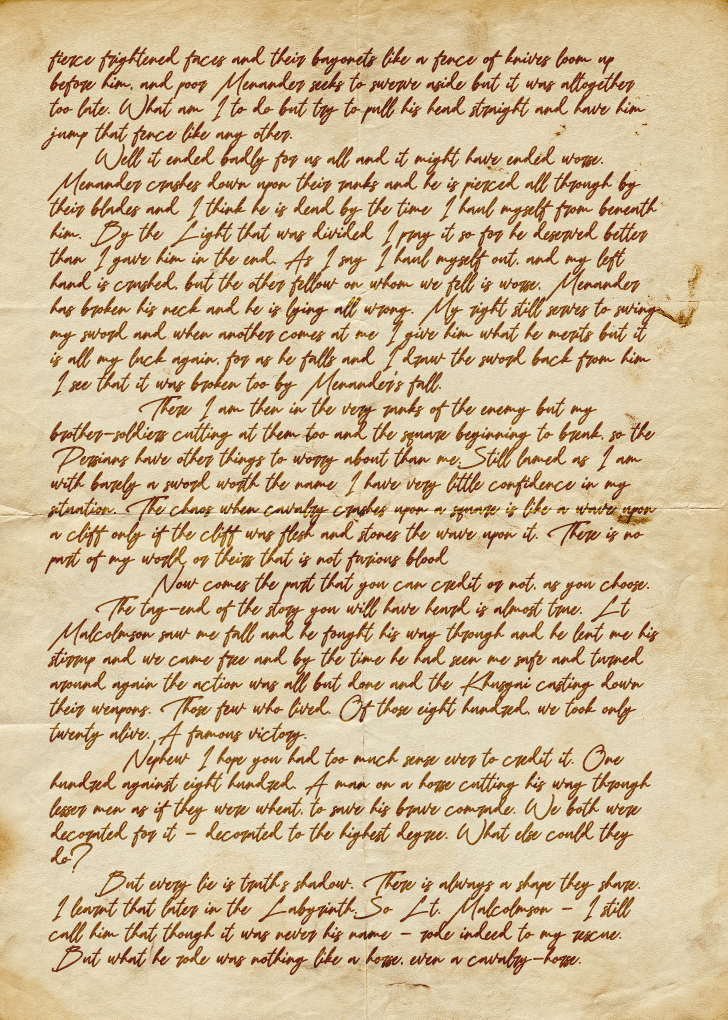 fierce frightened faces and their bayonets like a fence of knives loom up
before him, and poor Menander seeks to swerve aside but it was altogether
too late. What am I to do but try to pull his head straight and have him
jump that fence like any other.
Well it ended badly for us all and it might have ended worse.
Menander crashes down upon their ranks and he is pierced all through by
their blades and I think he is dead by the time I haul myself from beneath
him. By the Light that was divided I pray it so for he deserved better
than I gave him in the end. As I say I haul myself out, and my left
hand is crushed, but the other fellow on whom we fell is worse. Menander
has broken his neck and he is lying all wrong. My right still serves to swing
my sword and when another comes at me I give him what he merits but it
is all my luck again, for as he falls and I draw the sword back from him
I see that it was broken too by Menander's fall.
There I am then in the very ranks of the enemy but my
brother-soldiers cutting at them too and the square beginning to break, so the
Persians have other things to worry about than me. Still lamed as I am
with barely a sword worth the name I have very little confidence in my
situation. The chaos when cavalry crashes upon a square is like a wave upon
a cliff only if the cliff was flesh and stones the wave upon it. There is no
part of my world or theirs that is not furious blood
Now comes the part that you can credit or not, as you choose.
The tag-end of the story you will have heard is almost true. Lt
Malcolmson saw me fall and he fought his way through and he lent me his
stirrup and we came free and by the time he had seen me safe and turned
around again the action was all but done and the Khusgai casting down
their weapons. Those few who lived. Of those eight hundred, we took only
twenty alive. A famous victory.
Nephew I hope you had too much sense ever to credit it. One
hundred against eight hundred. A man on a horse cutting his way through
lesser men as if they were wheat, to save his brave comrade. We both were
decorated for it - decorated to the highest degree. What else could they
do?
But every lie is truth's shadow. There is always a shape they share.
I learnt that later in the Labyrinth. So Lt. Malcolmson - I still
call him that though it was never his name - rode indeed to my rescue.
But what he rode was nothing like a horse, even a cavalry-horse.